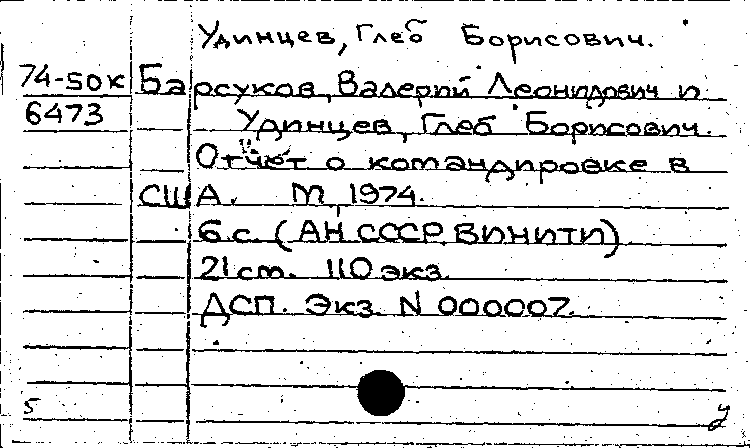 Удинцев, Глеб Борисович.
74-50к Барсуков, Валерий Леонидович и
6473 Удинцев, Глеб Борисович.
Отчёт о командировке в
США. М, 1974.
6 с. (АН СССР. ВИНИТИ)
21 см. 110 экз.
ДСП. Экз. N 000007.
5 У